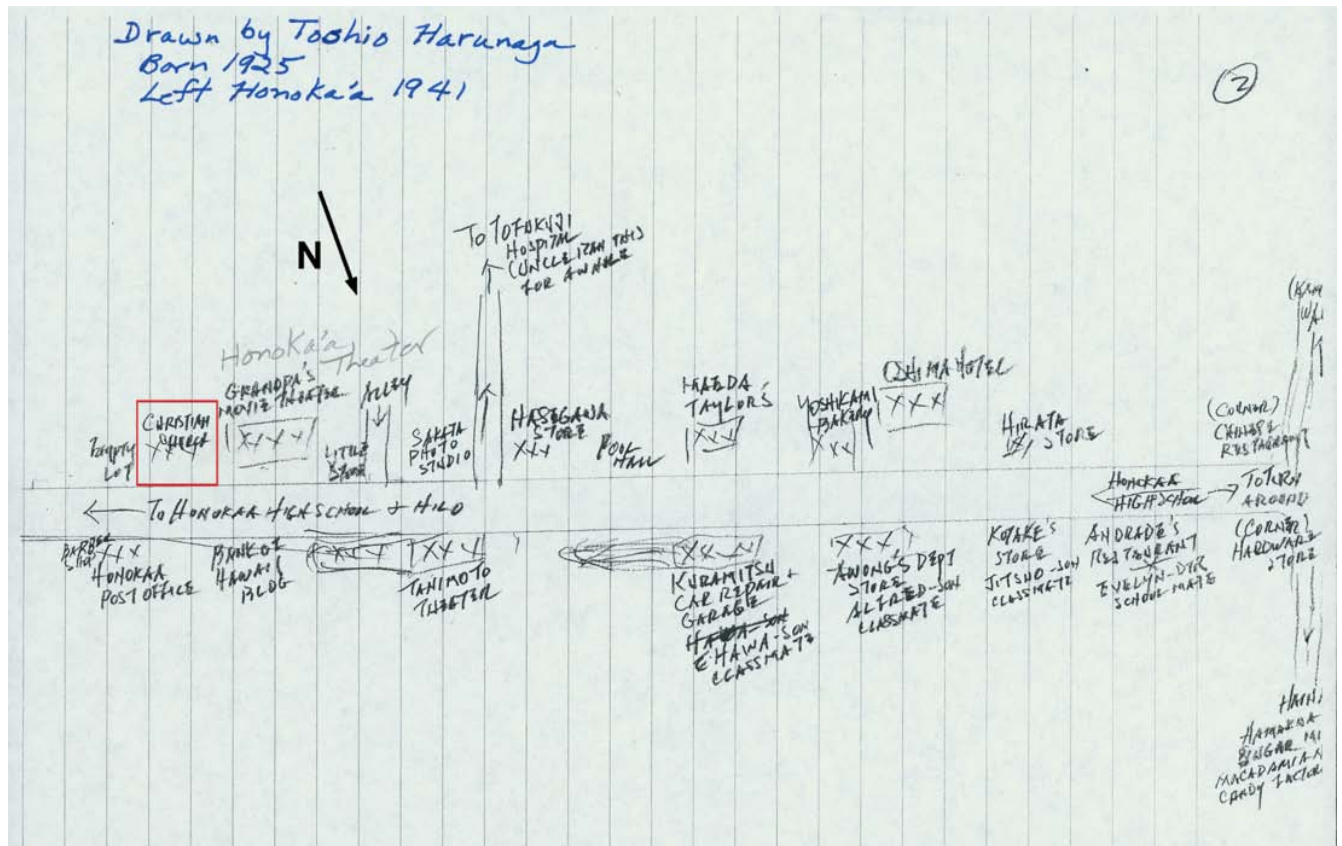 Drawn by Toshio Harunaga
Born 1925
Left Honoka'a 1941
2
N
To TOFUKUJI
HOSPITAL
FOR AWHILE
Honoka'a
Theater
GRANDPA'S
MOVIE THEATER
ALLEY
CHRISTIAN
CHURCH
EMPTY
LOT
XXXX
LITTLE
STORE
SAKATA
PHOTO
STUDIO
HASEGAWA
STORE
XXX
POOL
HALL
MAEDA
TAYLOR'S
XXX
YOSHIKAMI
BAKERY
XXX
OSHIMA HOTEL
XXX
HIRATA
STORE
(CORNER)
CHINESE
RESTAURANT
TO HONOKAA HIGH SCHOOL & HILO
HONOKAA
HIGH SCHOOL
TO TURN
AROUND
BARBER
SHOP
XXX
HONOKAA
POST OFFICE
BANK OF
HAWAII
BLDG
XXX
XXX
TANIMOTO
THEATER
XXX
KURAMITSU
CAR REPAIR +
GARAGE
EHAWA-SON
CLASSMATE
XXX
AWONG'S DEPT
STORE
ALFRED-SON
CLASSMATE
KOTAKE'S
STORE
JITSUO-SON
CLASSMATE
ANDRADE'S
RESTAURANT
X
EVELYN-DTR
SCHOOL MATE
(CORNER)
HARDWARE
STORE
HAINA
HAMAKUA
SUGAR MI
MACADAMIA N
CANDY FACTOR